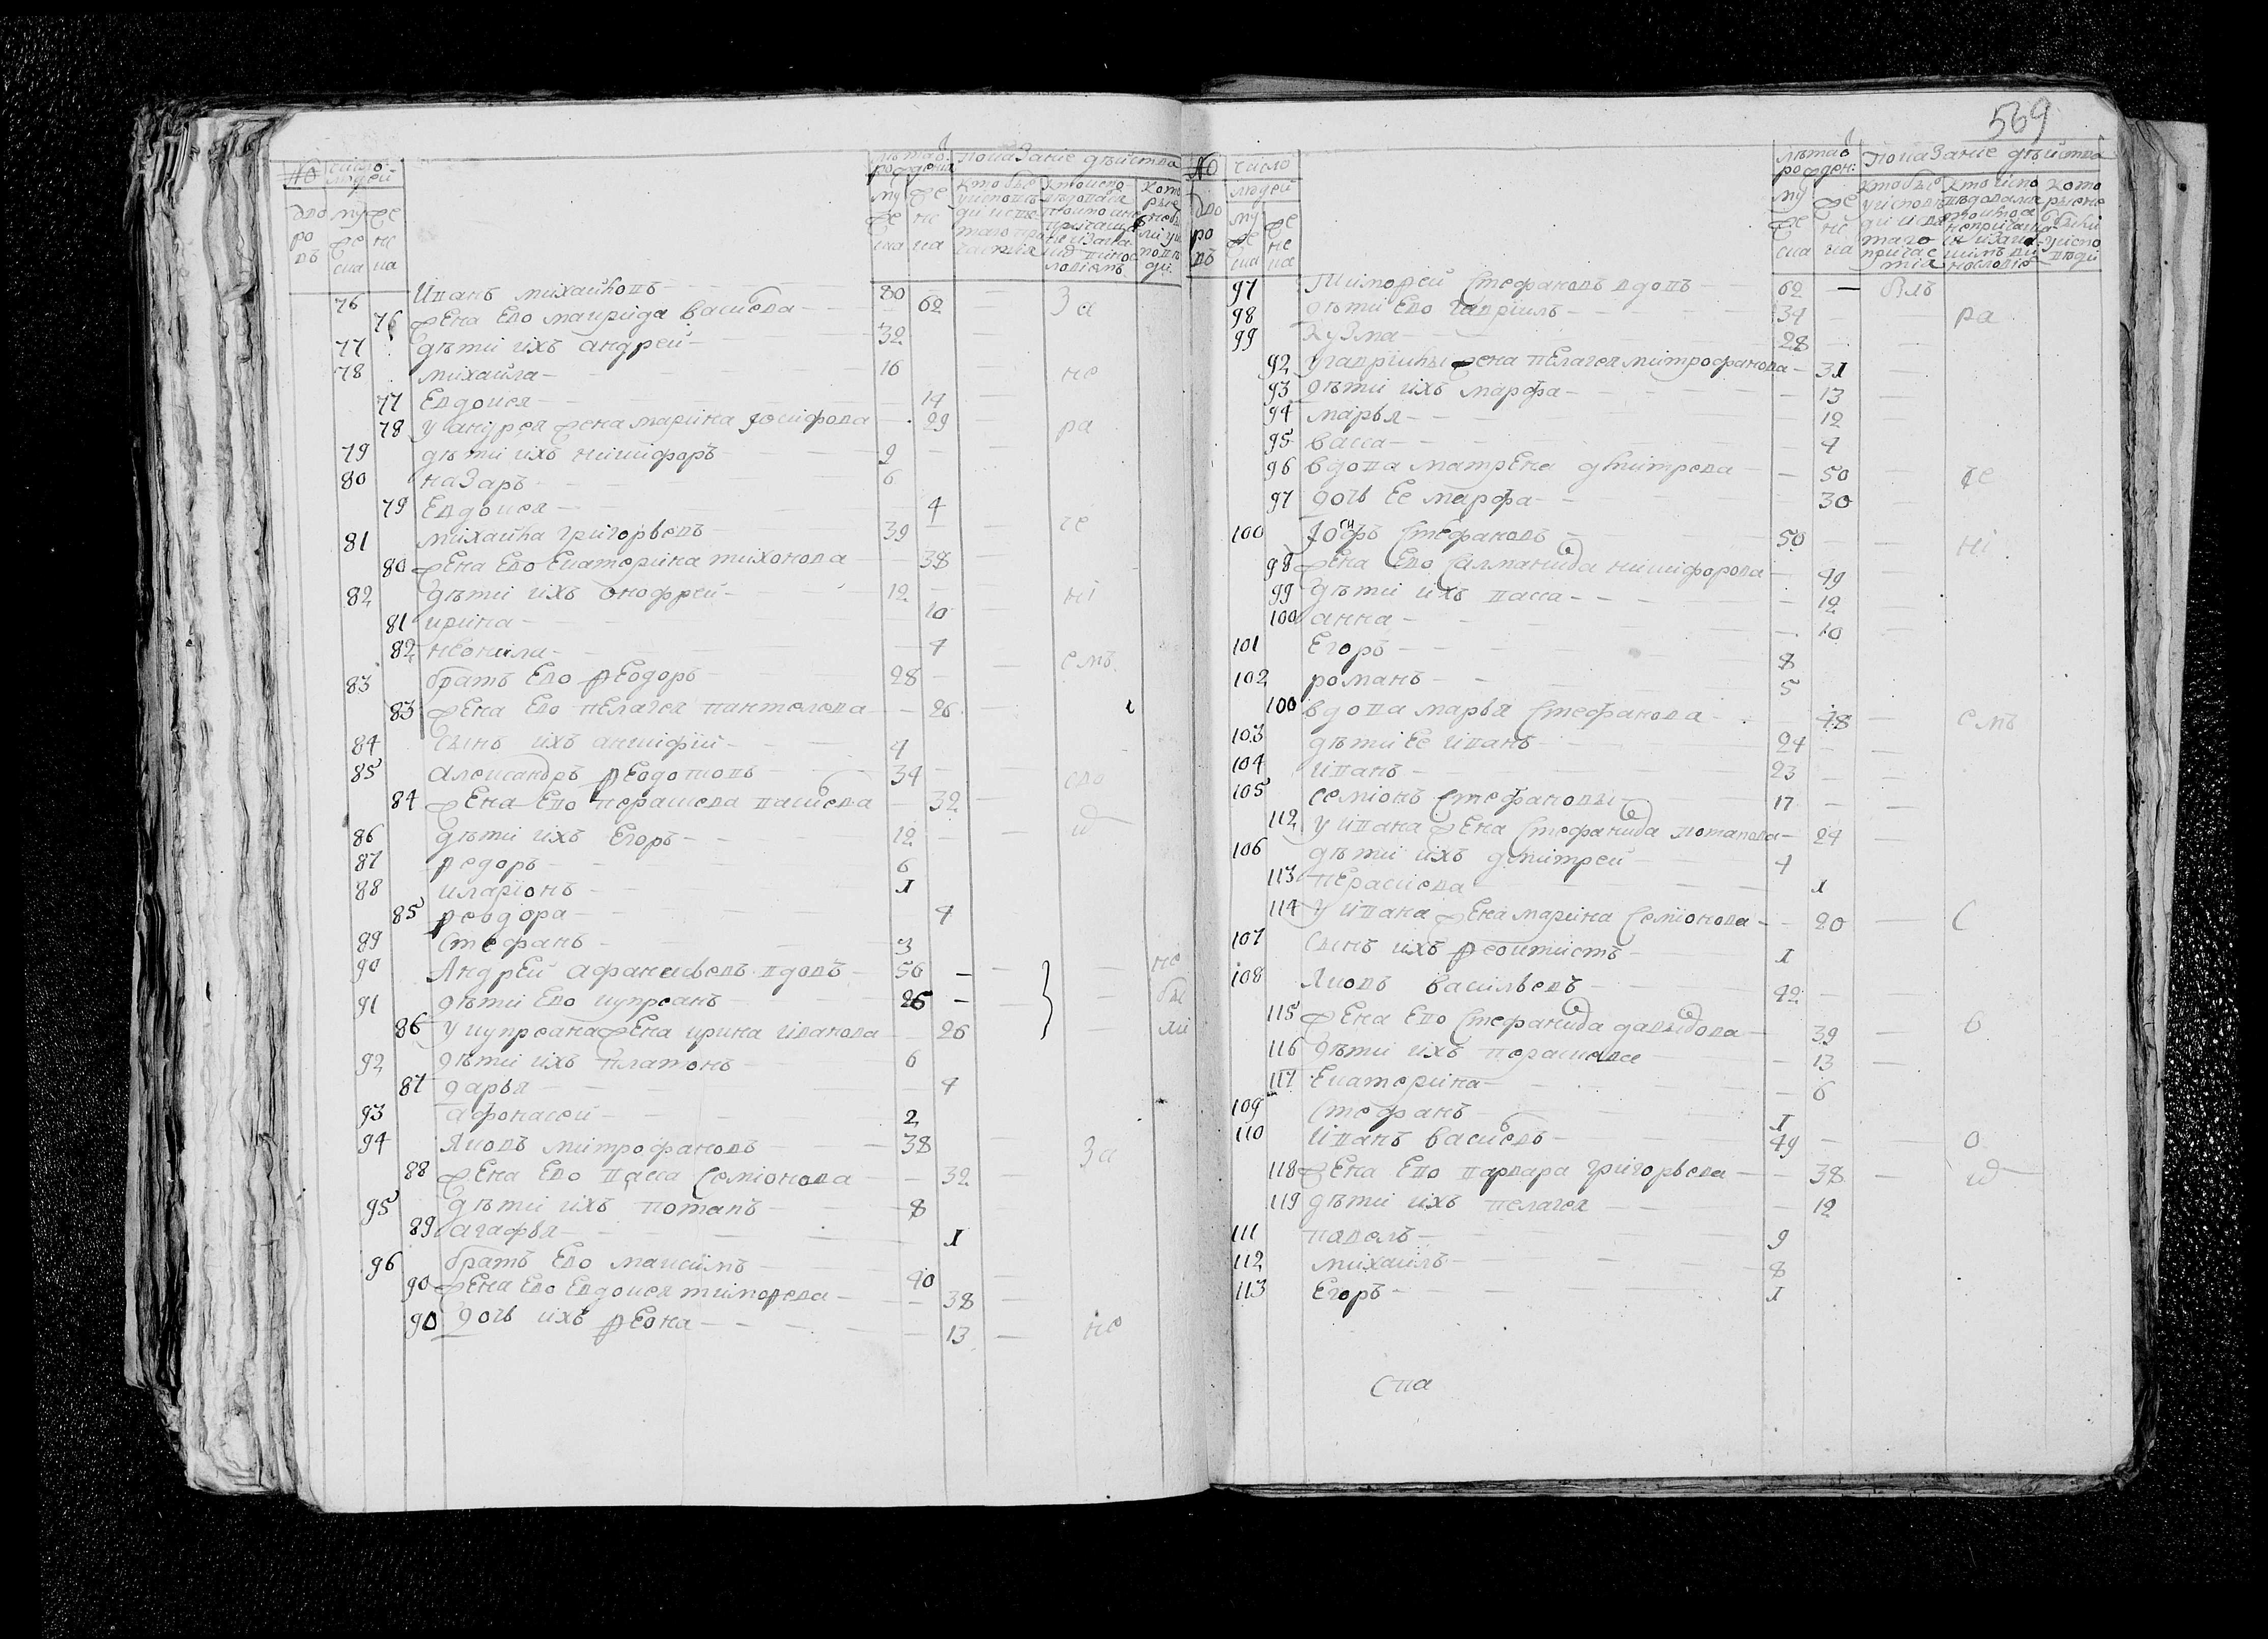 569
№
число людей
лѣта в рожден
показание дѣйства
дво ро въ
му же ска
же нс ка
76 Иванъ михайловъ 80 За
76 жена Ево маврида васиева 62
77 дѣти ихъ андрей 32
78 михайла 16 не
77 Евдокея 14
78 у андрея жена марина Іосифова 29 ра
79 дѣти ихъ никифоръ 9
80 назаръ 6
79 Евдокея 4
81 михайла григорьевъ 39 че
80 жена Ево Екатерина тихонова 38
82 дѣти ихъ Онофрей 12 ні
81 ирина 10
82 неонила 4
83 братъ Ево Ѳеодоръ 28 емъ
83 жена Ево пелагея пантелева 26
84 сынъ ихъ анкифий 4
85 Александръ Ѳедотовъ 34 сво
84 жена Ево пераскева васиева 32
86 дѣти ихъ Егоръ 12 ю
87 Ѳедоръ 6
88 иларионъ 1
85 Ѳеодора 4
89 Стефанъ 3
90 Андрей афанасьевъ вдовъ 56 не
91 дѣти Ево купреанъ 26 бы
86 у купреана жена ирина иванова 26 ли
92 дѣти ихъ платонъ 6
87 дарья 4
93 афонасей 2
94 Яковъ митрофановъ 38 За
88 жена Ево васа семионова 32
95 дѣти ихъ потапъ 8
89 агафья 1
96 братъ Ево максимъ 40
90 жена Ево Евдокея тимоѳева 38
90 дочь ихъ Ѳеона 13 не
№
число людей
лѣта в рожден:
показание дѣйства
дво ро въ
му же ска
же нс ка
97 Тимоѳей Стефановъ вдовъ 62 Влъ
98 дѣти Ево гавриилъ 34 ра
99 кузма 28
92 у гаврилы жена пелагея митрофанова 31
93 дѣти ихъ марфа 13
94 марья 12
95 васса 4
96 вдова матрена дмитрева 50 че
97 дочь Ее марфа 30
100 Іосифъ Стефановъ 50 ні
98 жена Ево Салманида никифорова 49
99 дѣти ихъ васа 12
100 анна 10
101 Егоръ 8
102 романъ 5
100 вдова марья Стефанова 48 емъ
103 дѣти Ее иванъ 24
104 иванъ 23
105 семионъ Стефановы 17
112 у ивана жена Стефанида потапова 24
106 дѣти ихъ дмитрей 4
113 пераскева 1
114 у ивана жена марина Семионова 20 С
107 сынъ ихъ Ѳеоктистъ 1
108 Яковъ васильевъ 42
115 жена Ево Стефанида давыдова 39 в
116 дѣти ихъ пораскавее 13
117 Екатерина 6
109 Стефанъ 1
110 Иванъ васиевъ 49 о
118 жена Ево варвара григорьева 38 ю
119 дѣти ихъ пелагея 12
111 павелъ 9
112 михаилъ 8
113 Егоръ 1
Спа